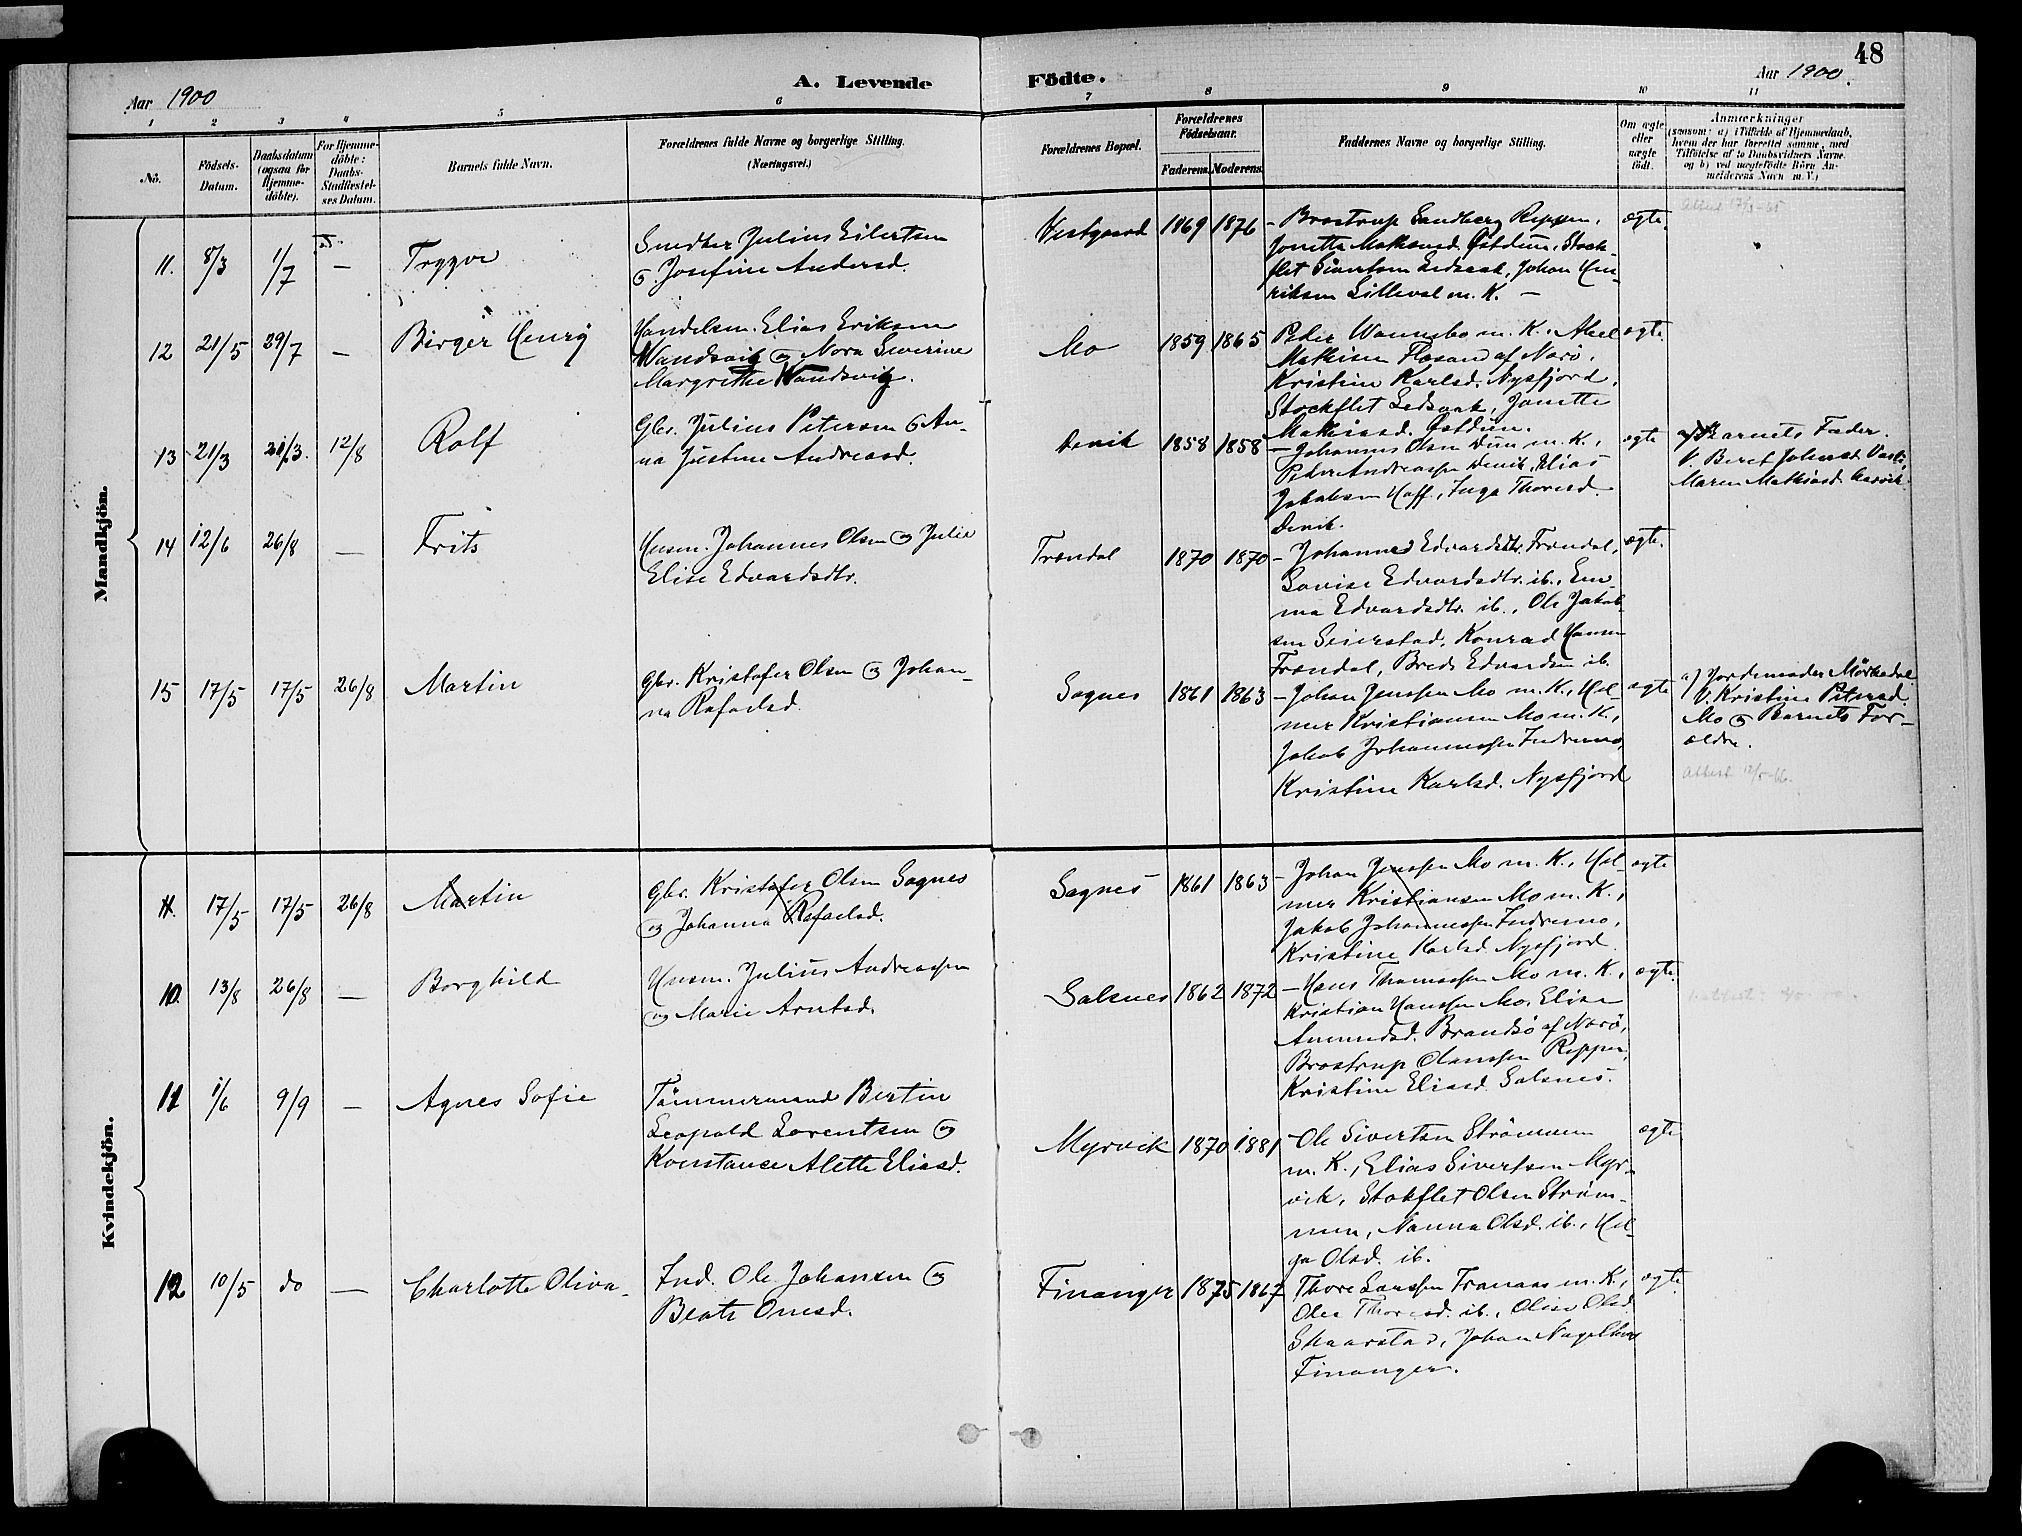 48
A. Levende Födte.
Aar 1900
Aar 1900
1 2 3 4 5 6 7 8 9 10 11
No.
Födsels-
Datum.
Daabsdatum
(ogsaa for
Hjemme-
döbte).
For Hjemme-
döbte:
Daabs-
Stadfæstel-
ses Datum.
Barnets fulde Navn.
Forældrenes fulde Navne og borgerlige Stilling.
(Næringsvei.)
Forældrenes Bopæl.
Forældrenes
Födselsaar.
Faderens. Moderens.
Faddernes Navne og borgerlige Stilling.
Om ægte
eller
uægte
födt.
Anmærkninger
(saasom: a) i Tilfælde af Hjemmedaab,
hvem der har forrettet samme, med
Tilföielse af to Daabsvidners Navne
og b) ved uægtefödte Börn An-
melderens Navn m. V.)
Mandkjön.
11. 8/3 1/7 — Trygve
Snedker Julius Eilertsen
og Josefine Andersd.
Vestgaard 1869 1876
- Brostrup Sandberg Reppen,
Jonette Mathiasd. Østduun, Stock-
flet Sivertsen Ledsaak, Johan Hen-
riksen Lilleval m. K. —
ægte.
12 21/5 29/7 — Birger Henry
Handelsm. Elias Eriksen
Wandsvig og Nora Severine
Margrethe Wandsvig.
Mo 1859 1865
Peder Wannebo m. K., Abel
Mathisen Flosand af Nærø,
Kristine Karlsd. Nysfjord,
Stockflet Ledsaak, Jonette
Mathiasd. Østduun.
ægte.
13 21/3 21/3. 12/8 Rolf
Gbr. Julius Petersen og An-
na Justine Andreasd.
Devik 1858 1858
- Johannes Olsen Duun m. K.,
Peder Andreassen Devik, Elias
Jakobsen Hoff, Inga Thoresd.
Devik.
ægte
a) Barnets Fader.
V. Beret Johnsd.
Maren Mathiasd.
14 12/6 26/8 — Frits
Husm. Johannes Olsen og Julie
Elise Edvardsdtr.
Trøndal 1870 1870
- Johannes Edvardsdtr. Trøndal,
Lovise Edvardsdtr. ib., Em-
ma Edvardsdtr. ib., Ole Jakob-
sen Seierstad, Konrad Hansen
Trøndal, Brede Edvardsen ib.
ægte.
15 17/5 17/5 26/8 Martin
Gbr. Kristofer Olsen og Johan-
na Rafaelsd.
Sagnes 1861 1863
- Johan Jenssen Mo m. K., Hel-
mer Kristiansen Mo m. K.,
Jakob Johannessen Indremo,
Kristine Karlsd. Nysfjord
ægte
a) Jordemoder Mørkedal
V. Kristine Petersd.
Mo og Barnets For-
ældre.
Attest 12/5-66.
Kvindekjön.
11. 17/5 17/5 26/8 Martin
Gbr. Kristofer Olsen Sagnes
og Johanna Rafaelsd.
Sagnes 1861 1863
- Johan Jenssen Mo m. K., Hel-
mer Kristiansen Mo m. K.,
Jakob Johannessen Indremo,
Kristine Karlsd. Nysfjord.
ægte
10. 13/8 26/8 — Borghild
Husm. Julius Andreassen
og Marie Arntsd.
Salsnes 1862 1872
- Hans Thomassen Mo m. K.,
Kristian Hanssen Mo, Elise
Amundsd. Brandsø af Nærø,
Brostrup Olaussen Reppen,
Kristine Eliasd. Salsnes.
ægte.
11 1/6 9/9 — Agnes Sofie
Tömmermand Bertin
Leopold Lorentsen og
Konstance Alette Eliasd.
Myrvik 1870 1881
- Ole Sivertsen Strømmen
m. K., Elias Sivertsen Myr-
vik, Stokflet Olsen Strøm-
men, Nanna Olsd. ib., Hel-
ga Olsd. ib.
ægte
12 10/5 do — Charlotte Oliva.
Ind. Ole Johansen og
Beate Onesd.
Finanger 1875 1867
Thore Larssen Tranaas m. K.,
Olea Thoresd. ib., Olise Olsd.
Skaarstad, Johan Nagelhus
Finanger.
ægte.